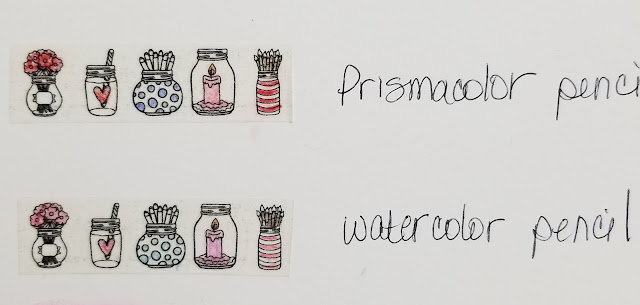 Prismacolor penci
watercolor pencil